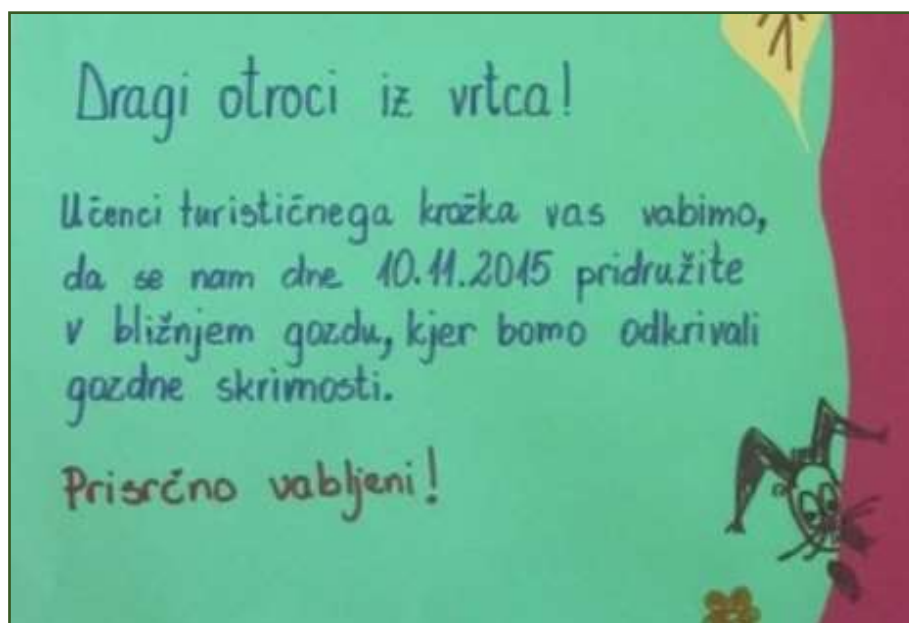 Dragi otroci iz vrtca!
Učenci turističnega krožka vas vabimo,
da se nam dne 10.11.2015 pridružite
v bližnjem gozdu, kjer bomo odkrivali
gozdne skrimosti.
Prisrčno vabljeni!